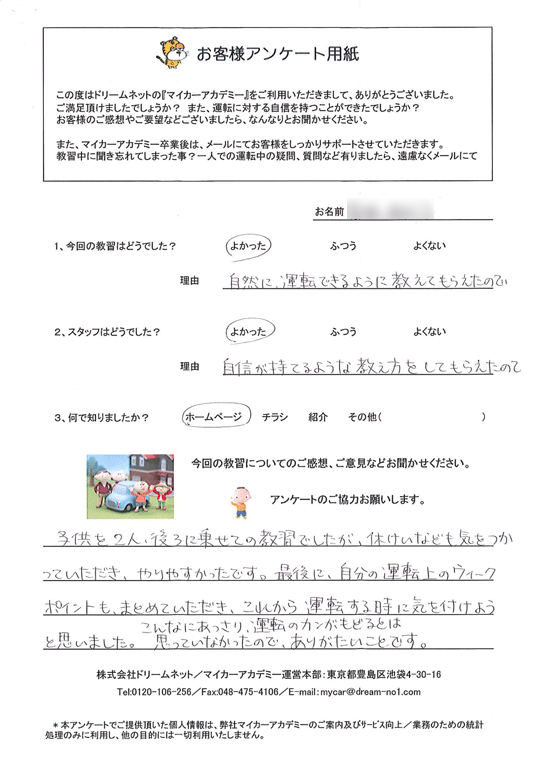 お客様アンケート用紙
この度はドリームネットの『マイカーアカデミー』をご利用いただきまして、ありがとうございました。
ご満足頂けましたでしょうか? また、運転に対する自信を持つことができたでしょうか?
お客様のご感想やご要望などございましたら、なんなりとお聞かせください。
また、マイカーアカデミー卒業後は、メールにてお客様をしっかりサポートさせていただきます。
教習中に聞き忘れてしまった事?一人での運転中の疑問、質問など有りましたら、遠慮なくメールにて
お名前
1、今回の教習はどうでした? よかった ふつう よくない
理由 自然に、運転できるように教えてもらえたので
2、スタッフはどうでした? よかった ふつう よくない
理由 自信が持てるような教え方をしてもらえたので
3、何で知りましたか? ホームページ チラシ 紹介 その他( )
今回の教習についてのご感想、ご意見などお聞かせください。
アンケートのご協力お願いします。
子供を2人、後ろに乗せての教習でしたが、休けいなども気をつか
っていただき、やりやすかったです。最後に、自分の運転上のウィーク
ポイントも、まとめていただき、これから運転する時に気を付けよう
と思いました。こんなにあっさり、運転のカンがもどるとは
思っていなかったので、ありがたいことです。
株式会社ドリームネット/マイカーアカデミー運営本部:東京都豊島区池袋4-30-16
Tel:0120-106-256/Fax:048-475-4106/E-mail:mycar@dream-no1.com
*本アンケートでご提供頂いた個人情報は、弊社マイカーアカデミーのご案内及びサービス向上/業務のための統計
処理のみに利用し、他の目的には一切利用いたしません。